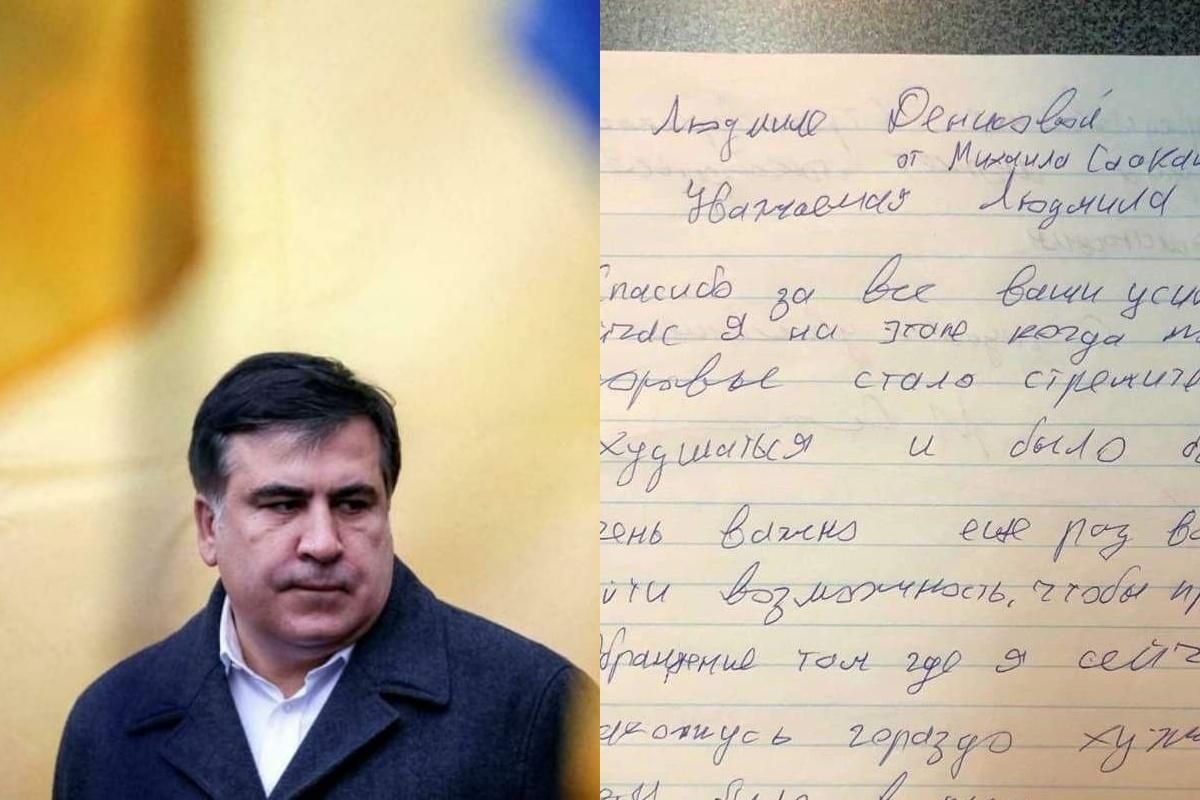 Людмиле Денисовой
от Михаила Саака
Уважаемая Людмила
Спасибо за все ваши уси
йчас я на этапе когда
оровье стало стремите
худшаться и было
чень важно еще раз ва
йти возможность, чтобы пр
бращение там где я сейч
ахожусь гораздо хуж